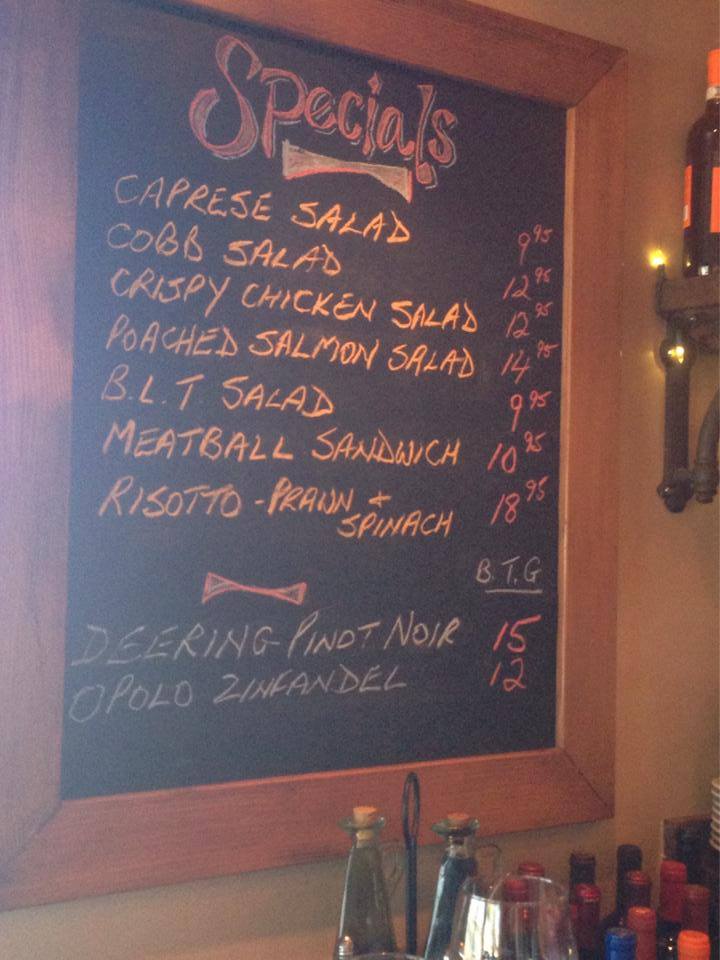 Specials
CAPRESE SALAD 9 95
COBB SALAD 12 95
CRISPY CHICKEN SALAD 12 95
POACHED SALMON SALAD 14 95
B.L.T. SALAD 9 95
MEATBALL SANDWICH 10 95
RISOTTO - PRAWN + 18 95
SPINACH
B.T.G
DEERING PINOT NOIR 15
OPOLO ZINFANDEL 12